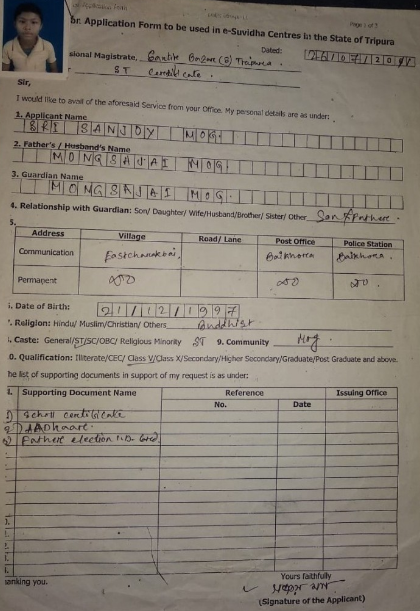 br. Application Form to be used in e-Suvidha Centres in the State of Tripura
Page 1 of
Dated:
sional Magistrate,
ST Certificate.
Sir,
I would like to avail of the aforesaid Service from your Office. My personal details are as under:
1. Applicant Name
SRI SANJOY MOG.
2. Father's / Husband's Name
MONGSAJAI MOG.
3. Guardian Name
MONGSAJAI MOG.
4. Relationship with Guardian: Son/ Daughter/ Wife/Husband/Brother/ Sister/ Other Son
5.
Address Village Road/ Lane Post Office Police Station
Communication Baikhora Baikhora.
Permanent
. Date of Birth: 21/12/1997
. Religion: Hindu/ Muslim/Christian/ Others Buddhist
. Caste: General/ST/SC/OBC/ Religious Minority ST 9. Community Mog.
0. Qualification: Illiterate/CEC/ Class V/Class X/Secondary/Higher Secondary/Graduate/Post Graduate and above.
he list of supporting documents in support of my request is as under:
Supporting Document Name Reference Issuing Office
No. Date
1) Scholl certificate
2) AADhaare.
3) Fathere election I.D. Card.
anking you.
Yours faithfully
(Signature of the Applicant)